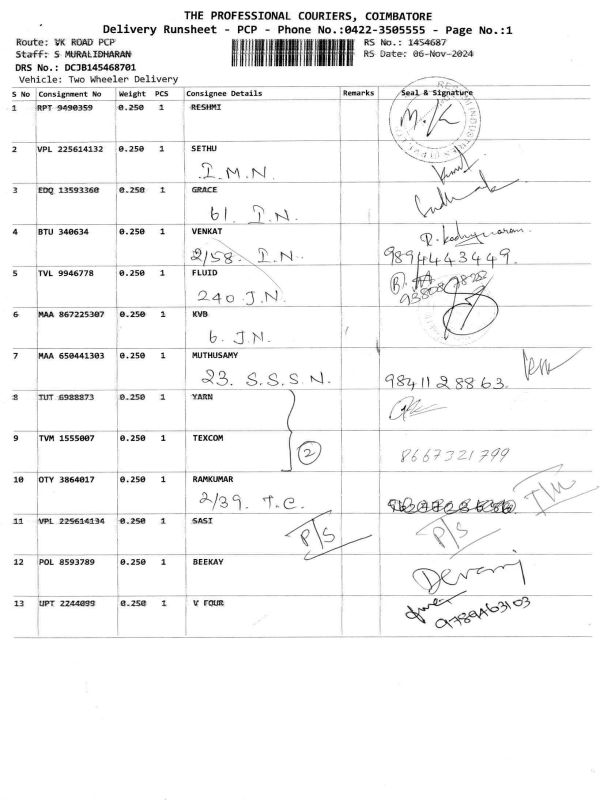 THE PROFESSIONAL COURIERS, COIMBATORE
Delivery Runsheet - PCP - Phone No.:0422-3505555 - Page No.:1
Route: VK ROAD PCP RS No.: 1454687
Staff: S MURALIDHARAN RS Date: 06-Nov-2024
DRS No.: DCJB145468701
Vehicle: Two Wheeler Delivery
S No Consignment No Weight PCS Consignee Details Remarks Seal & Signature
1 RPT 9490359 0.250 1 RESHMI
M.K
2 VPL 225614132 0.250 1 SETHU
I.M.N.
3 EDQ 13593360 0.250 1 GRACE
61. I.N.
4 BTU 340634 0.250 1 VENKAT
2/58. I.N. 9894443449.
5 TVL 9946778 0.250 1 FLUID
240 J.N.
6 MAA 867225307 0.250 1 KVB
6. J.N.
7 MAA 650441303 0.250 1 MUTHUSAMY
23. S.S.S.N. 9841128863.
8 TUT 6988873 0.250 1 YARN
9 TVM 1555007 0.250 1 TEXCOM
2 8667321799
10 OTY 3864017 0.250 1 RAMKUMAR
2/39. T.C.
11 VPL 225614134 0.250 1 SASI
P/S P/S
12 POL 8593789 0.250 1 BEEKAY
13 UPT 2244099 0.250 1 V FOUR
9789463103